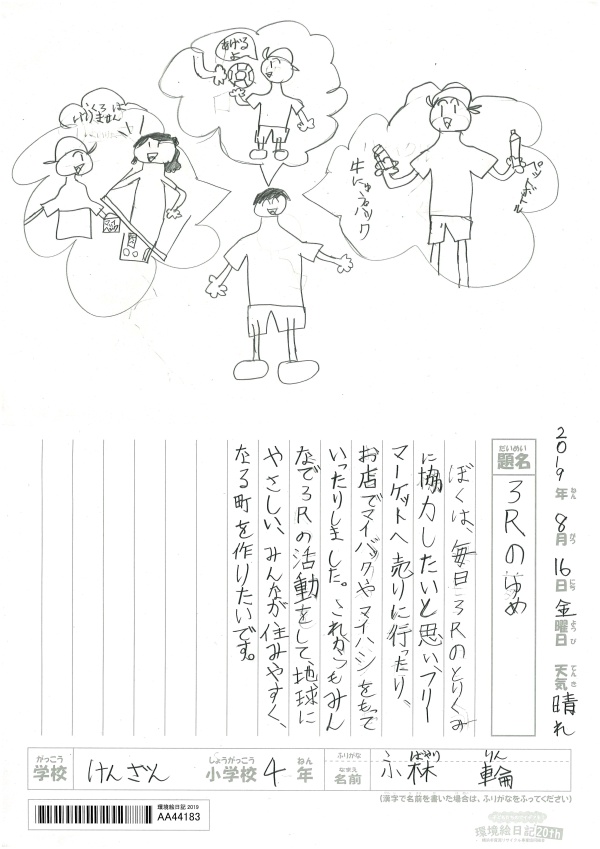 ふくろは
いりません
あげる
よ
牛にゅうパック
ペットボトル
2019年 8月 16日 金曜日 天気 晴れ
ねん がつ にち ようび てんき
だいめい
題名
3Rのゆめ
ぼくは、毎日3Rのとりくみ
に協力したいと思い、フリー
マーケットへ売りに行ったり、
お店でマイバックやマイハシをもって
いったりしました。これからもみん
なで3Rの活動をして、地球に
やさしい、みんなが住みやすく、
なる町を作りたいです。
がっこう
学校
けんざん
しょうがっこう
小学校
4
ねん
年
ふりがな
なまえ
名前
ばやし りん
小林 輪
(漢字で名前を書いた場合は、ふりがなをふってください)
環境絵日記 2019
AA44183
環境絵日記20th